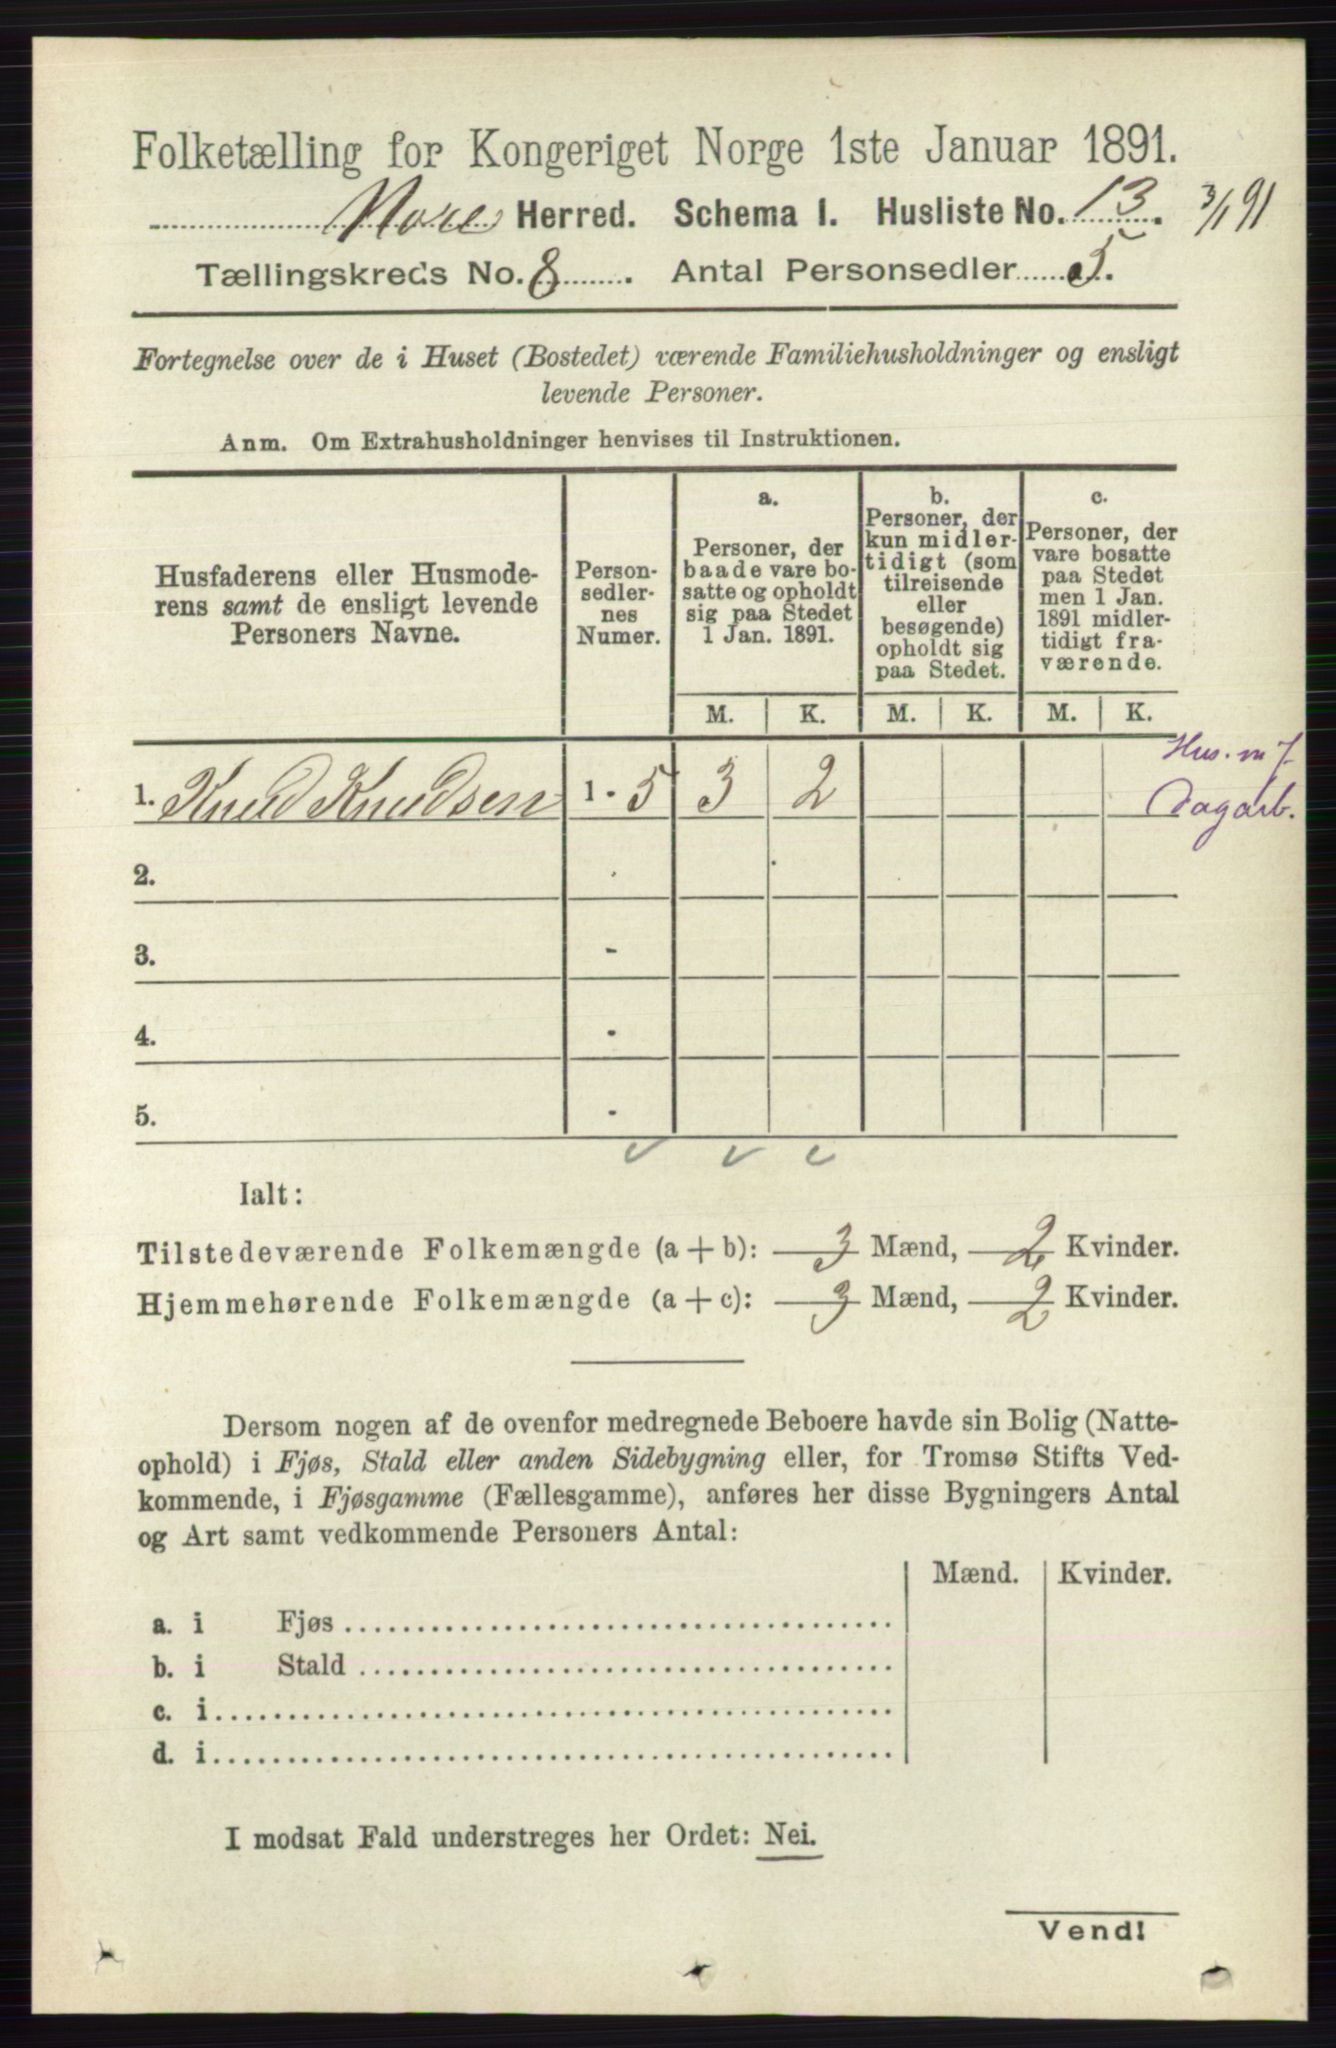 Folketælling for Kongeriget Norge 1ste Januar 1891.
Nore Herred. Schema I. Husliste No. 13. 3/1 91
Tællingskreds No. 8. Antal Personsedler 5.
Fortegnelse over de i Huset (Bostedet) værende Familiehusholdninger og ensligt
levende Personer.
Anm. Om Extrahusholdninger henvises til Instruktionen.
Husfaderens eller Husmode-
rens samt de ensligt levende
Personers Navne.
Person-
sedler-
nes
Numer.
a.
Personer, der
baade vare bo-
satte og opholdt
sig paa Stedet
1 Jan. 1891.
b.
Personer, der
kun midler-
tidigt (som
tilreisende
eller
besøgende)
opholdt sig
paa Stedet.
c.
Personer, der
vare bosatte
paa Stedet
men 1 Jan.
1891 midler-
tidigt fra-
værende.
M. K. M. K. M. K.
Hus. m J.
1. Knud Knudsen 1 - 5 3 2
Dagarb.
2.
3. -
4. -
5. -
Ialt:
Tilstedeværende Folkemængde (a + b): 3 Mænd, 2 Kvinder.
Hjemmehørende Folkemængde (a + c): 3 Mænd, 2 Kvinder.
Dersom nogen af de ovenfor medregnede Beboere havde sin Bolig (Natte-
ophold) i Fjøs, Stald eller anden Sidebygning eller, for Tromsø Stifts Ved-
kommende, i Fjøsgamme (Fællesgamme), anføres her disse Bygningers Antal
og Art samt vedkommende Personers Antal:
Mænd. Kvinder.
a. i Fjøs
b. i Stald
c. i
d. i
I modsat Fald understreges her Ordet: Nei.
Vend!